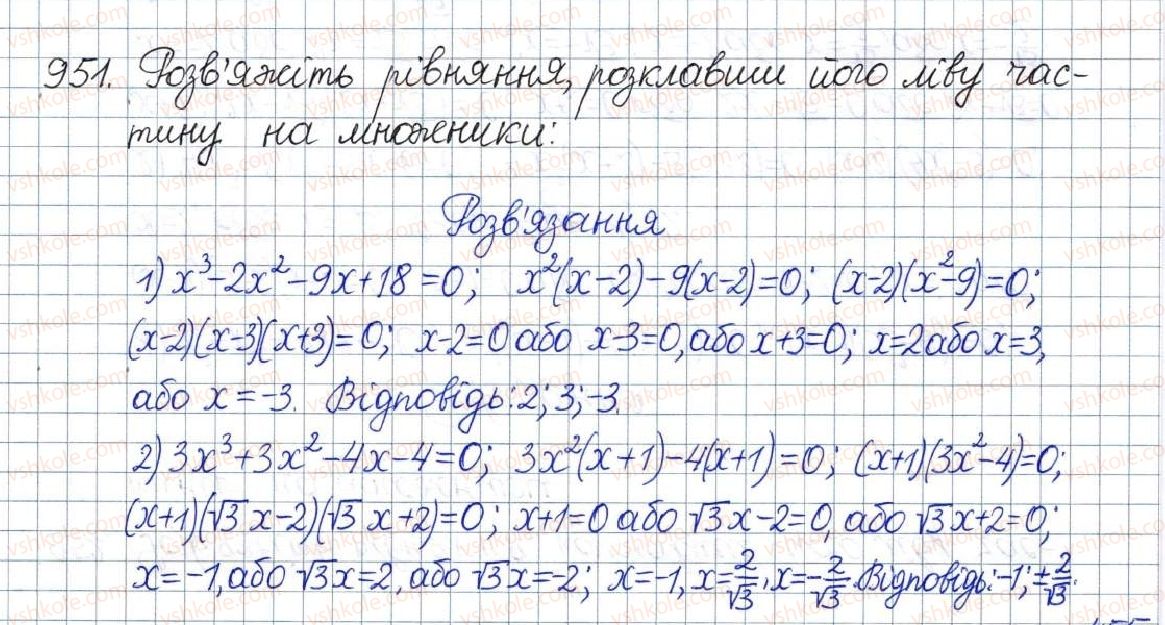 951. Розв'яжіть рівняння, розклавши його ліву час-
тину на множники:
Розв'язання
1) x³-2x²-9x+18=0; x²(x-2)-9(x-2)=0; (x-2)(x²-9)=0;
(x-2)(x-3)(x+3)=0; x-2=0 або x-3=0, або x+3=0; x=2 або x=3,
або x=-3. Відповідь: 2; 3; -3.
2) 3x³+3x²-4x-4=0; 3x²(x+1)-4(x+1)=0; (x+1)(3x²-4)=0;
(x+1)(√3x-2)(√3x+2)=0; x+1=0 або √3x-2=0, або √3x+2=0;
x=-1, або √3x=2, або √3x=-2; x=-1, x=2/√3, x=-2/√3. Відповідь: -1; ±2/√3.